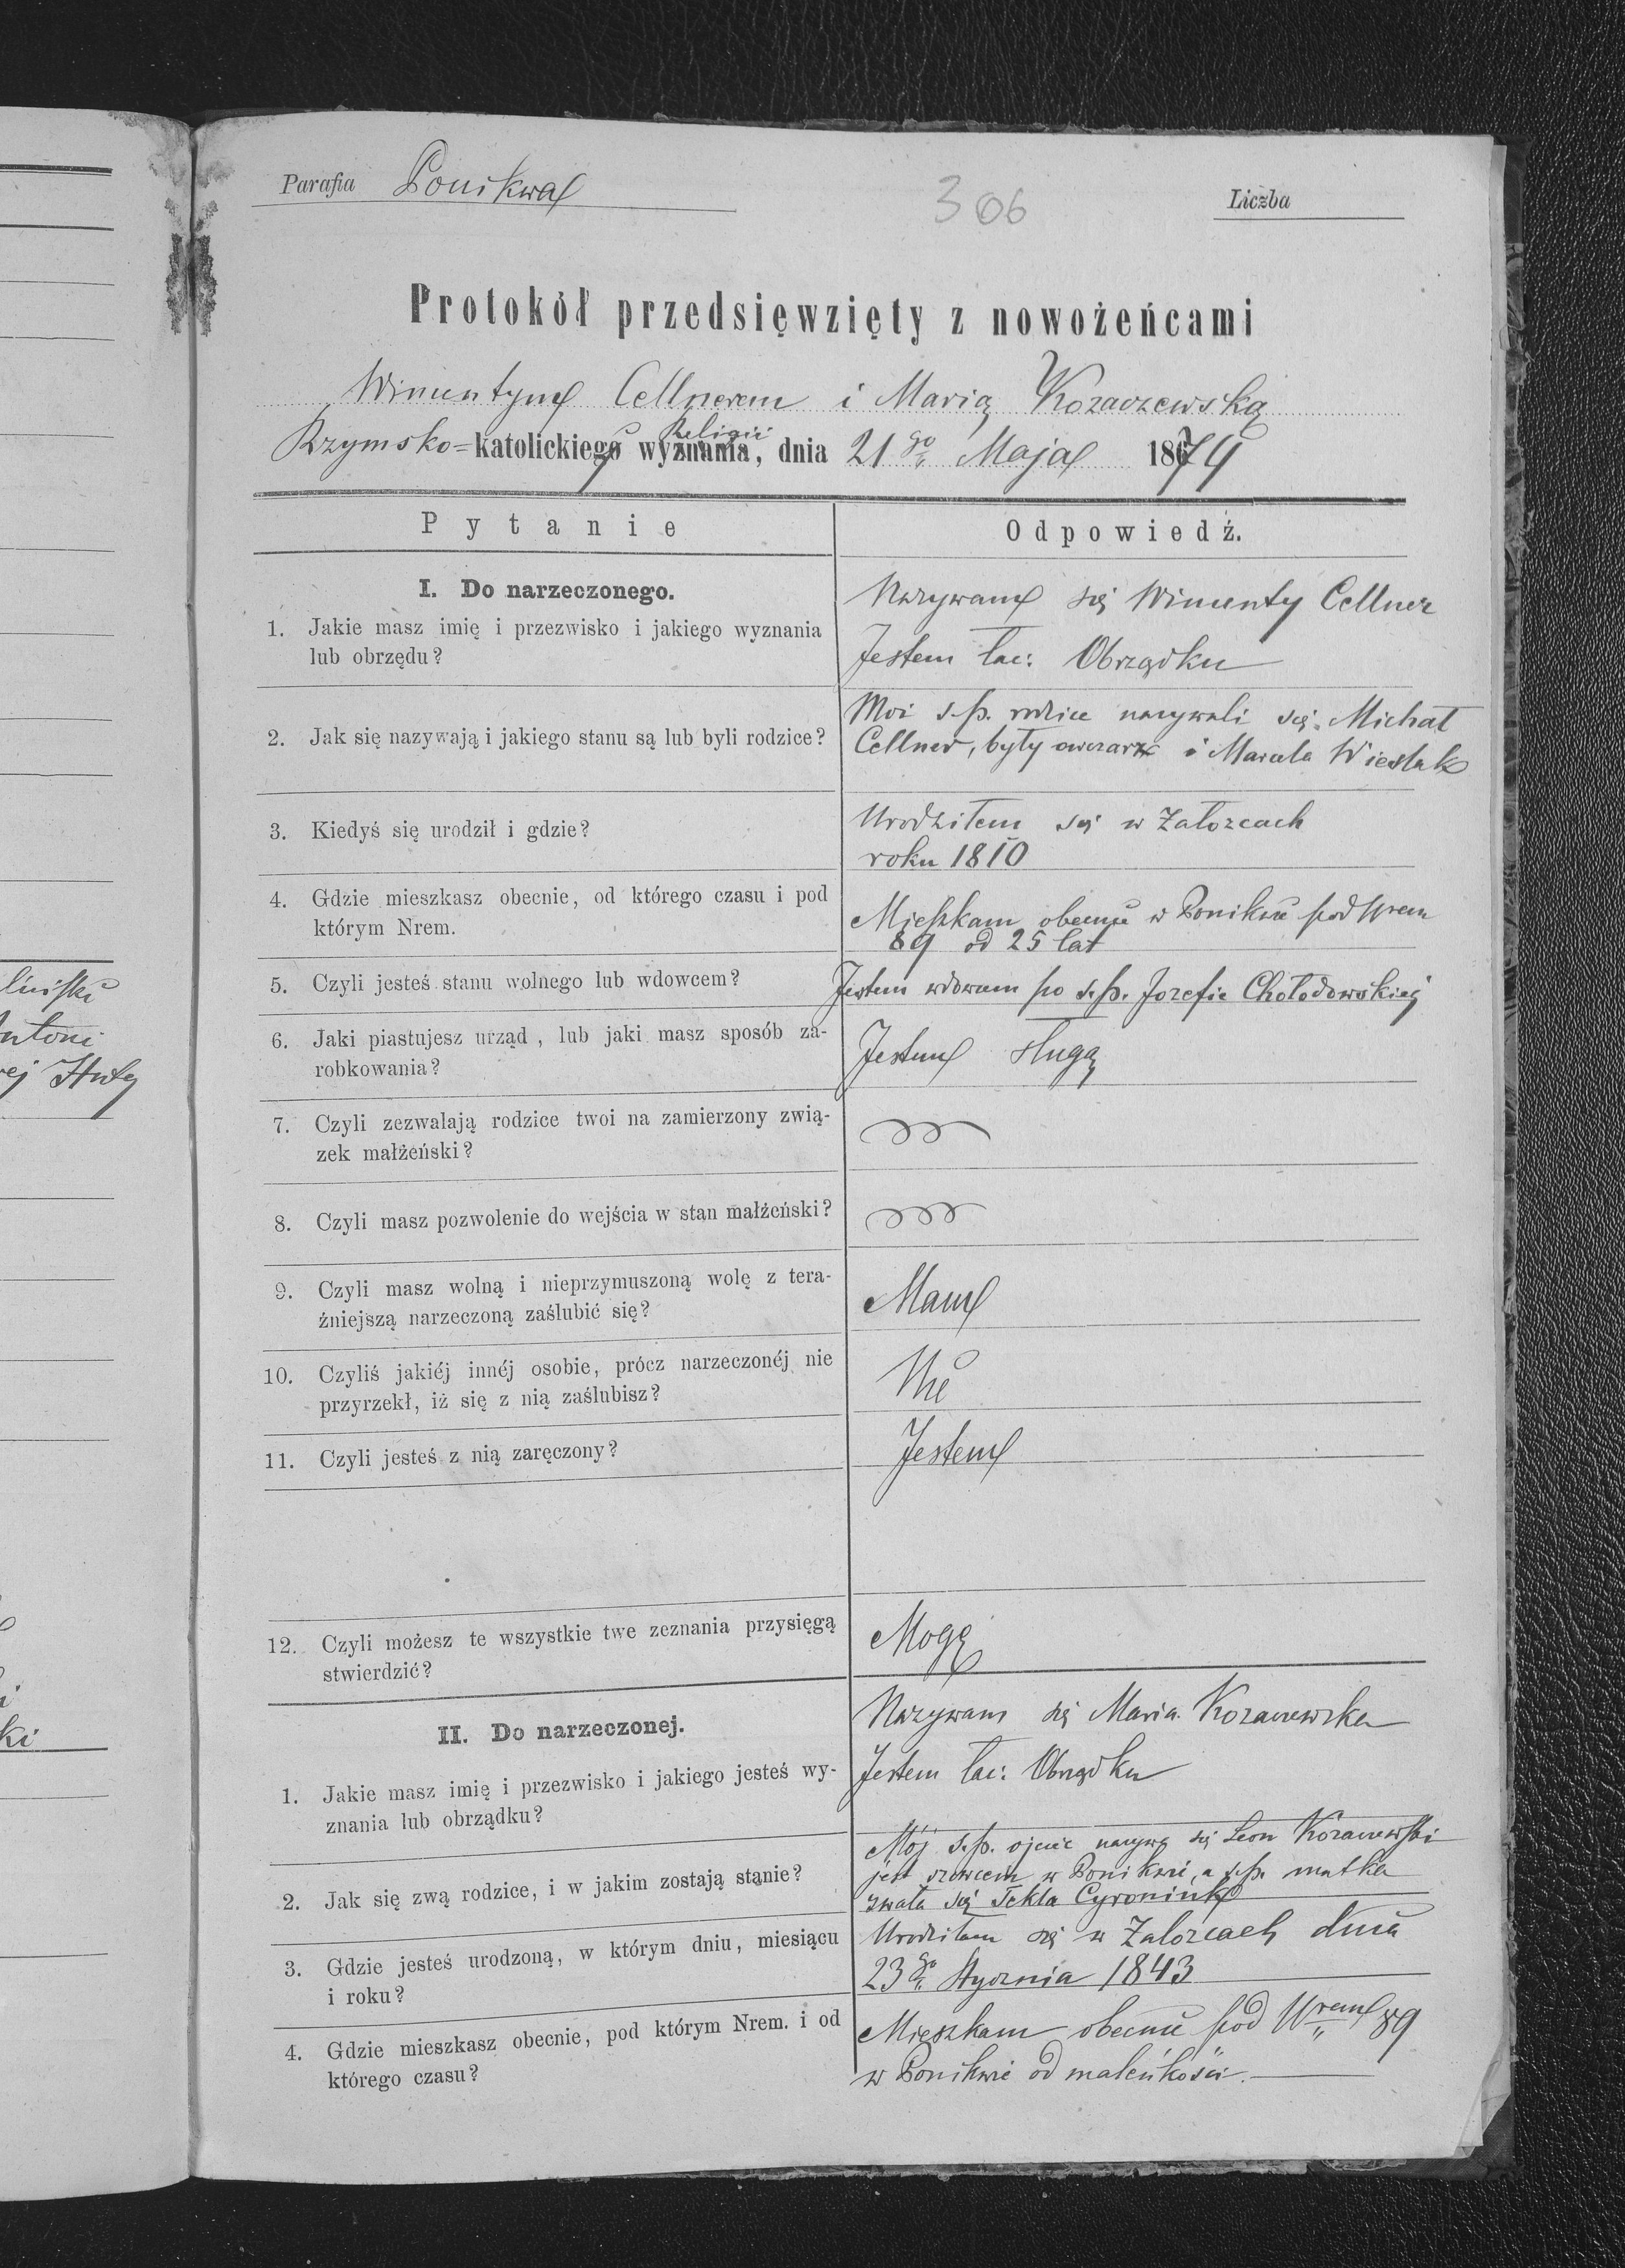 Parafia Ponikwa
306
Liczba
Protokół przedsięwzięty z nowożeńcami
Wincentym Cellnerem i Marią Kozaczewską
Religii
Rzymsko=katolickiego wyznania, dnia 21go Maja 1874
Pytanie
Odpowiedź.
I. Do narzeczonego.
1. Jakie masz imię i przezwisko i jakiego wyznania
lub obrzędu?
Nazywam się Wincenty Cellner
Jestem łac: Obrządku
2. Jak się nazywają i jakiego stanu są lub byli rodzice?
Moi s.p. rodzice nazywali się Michał
Cellner, były owczarz i Marcela Wieslak
3. Kiedyś się urodził i gdzie?
Urodziłem się w Załozcach
roku 1810
4. Gdzie mieszkasz obecnie, od którego czasu i pod
którym Nrem.
Mieszkam obecnie w Ponikwie pod Nrem
89 od 25 lat
5. Czyli jesteś stanu wolnego lub wdowcem?
Jestem wdowcem po s.p. Jozefie Chołodowskiej
6. Jaki piastujesz urząd, lub jaki masz sposób za-
robkowania?
Jestem sługą
7. Czyli zezwalają rodzice twoi na zamierzony zwią-
zek małżeński?
8. Czyli masz pozwolenie do wejścia w stan małżeński?
9. Czyli masz wolną i nieprzymuszoną wolę z tera-
źniejszą narzeczoną zaślubić się?
Mam
10. Czyliś jakiéj innéj osobie, prócz narzeczonéj nie
przyrzekł, iż się z nią zaślubisz?
Nie
11. Czyli jesteś z nią zaręczony?
Jestem
12. Czyli możesz te wszystkie twe zeznania przysięgą
stwierdzić?
Mogę
II. Do narzeczonej.
1. Jakie masz imię i przezwisko i jakiego jesteś wy-
znania lub obrządku?
Nazywam się Maria Kozaczewska
Jestem łac: Obrządku
2. Jak się zwą rodzice, i w jakim zostają stanie?
Mój s.p. ojciec nazywa się Leon Kozaczewski
jest szewcem w Ponikwie, a s.p. matka
zwała się Tekla Cyroniuk
3. Gdzie jesteś urodzoną, w którym dniu, miesiącu
i roku?
Urodziłam się w Załozcach dnia
23go Stycznia 1843
4. Gdzie mieszkasz obecnie, pod którym Nrem. i od
którego czasu?
Mieszkam obecnie pod Nrem 89
w Ponikwie od maleńkości.
ntoni
ki